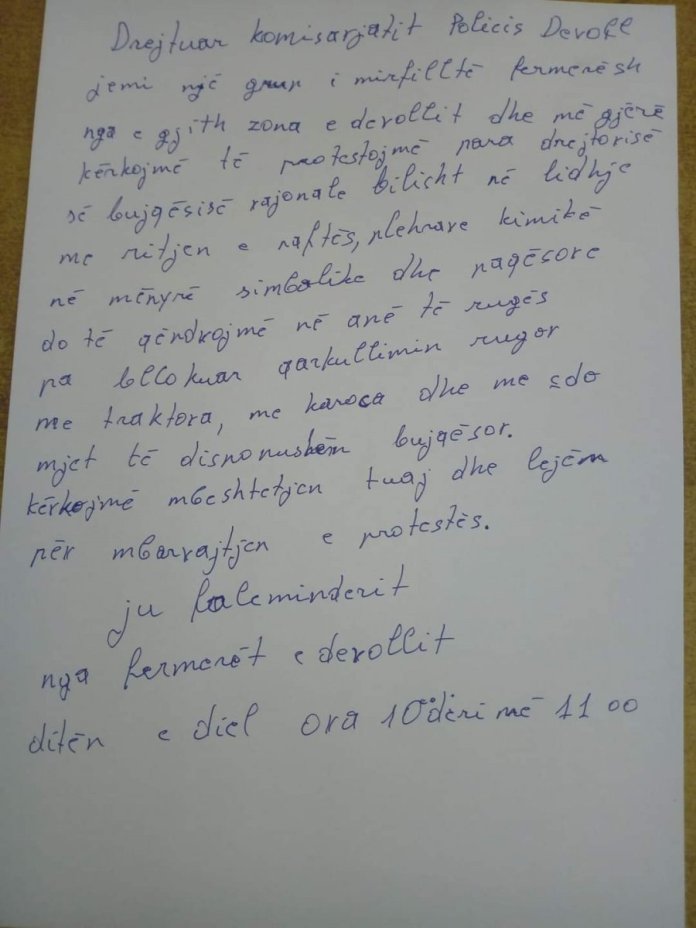 Drejtuar komisarjatit Policis Devoll
jemi një grup i mirfilltë fermerësh
nga e gjith zona e devollit dhe më gjërë
kërkojmë të protestojmë para drejtorisë
së bujqësisë rajonale bilisht në lidhje
me ritjen e naftës, plehrave kimikë
në mënyrë simbolike dhe paqësore
do të qëndrojmë në anë të rugës
pa bllokuar qarkullimin rugor
me traktora, me karoca dhe me sdo
mjet të disponushëm bujqësor.
kërkojmë mbeshtetjen tuaj dhe lejën
për mbarvajtjen e protestës.
ju faleminderit
nga fermerët e devollit
ditën e diel ora 10°° deri më 11 00